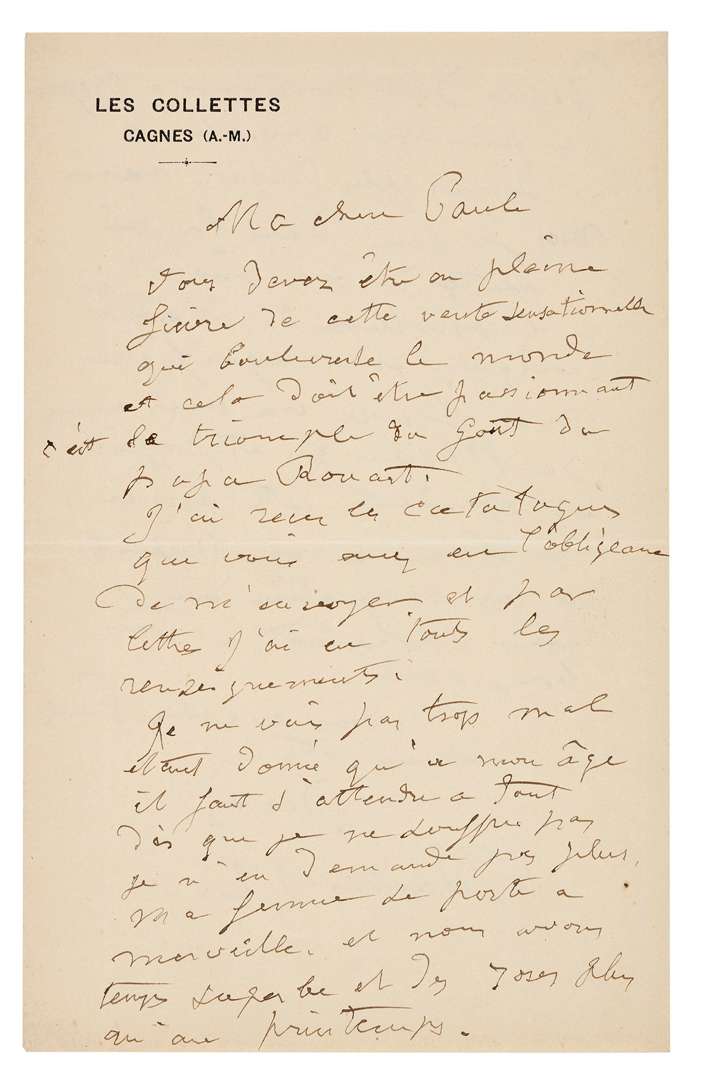 LES COLLETTES
CAGNES (A.-M.)
Ma chere Paule
Vous devez être en pleine
fièvre de cette vente sensationnelle
qui bouleverse le monde
et cela doit être passionnant
c'est le triomphe du gout du
papa Rouart.
J'ai recu les catalogues
que vous avez eu l'obligeance
de m'envoyer et par
lettre j'ai eu touts les
renseignements.
Je ne vais pas trop mal
étant donné qu'a mon âge
il faut s'attendre a tout
dès que je ne souffre pas
je n'en demande pas plus.
Ma femme se porte a
merveille. et nous avons
temps superbe et des roses plus
qu'au printemps.